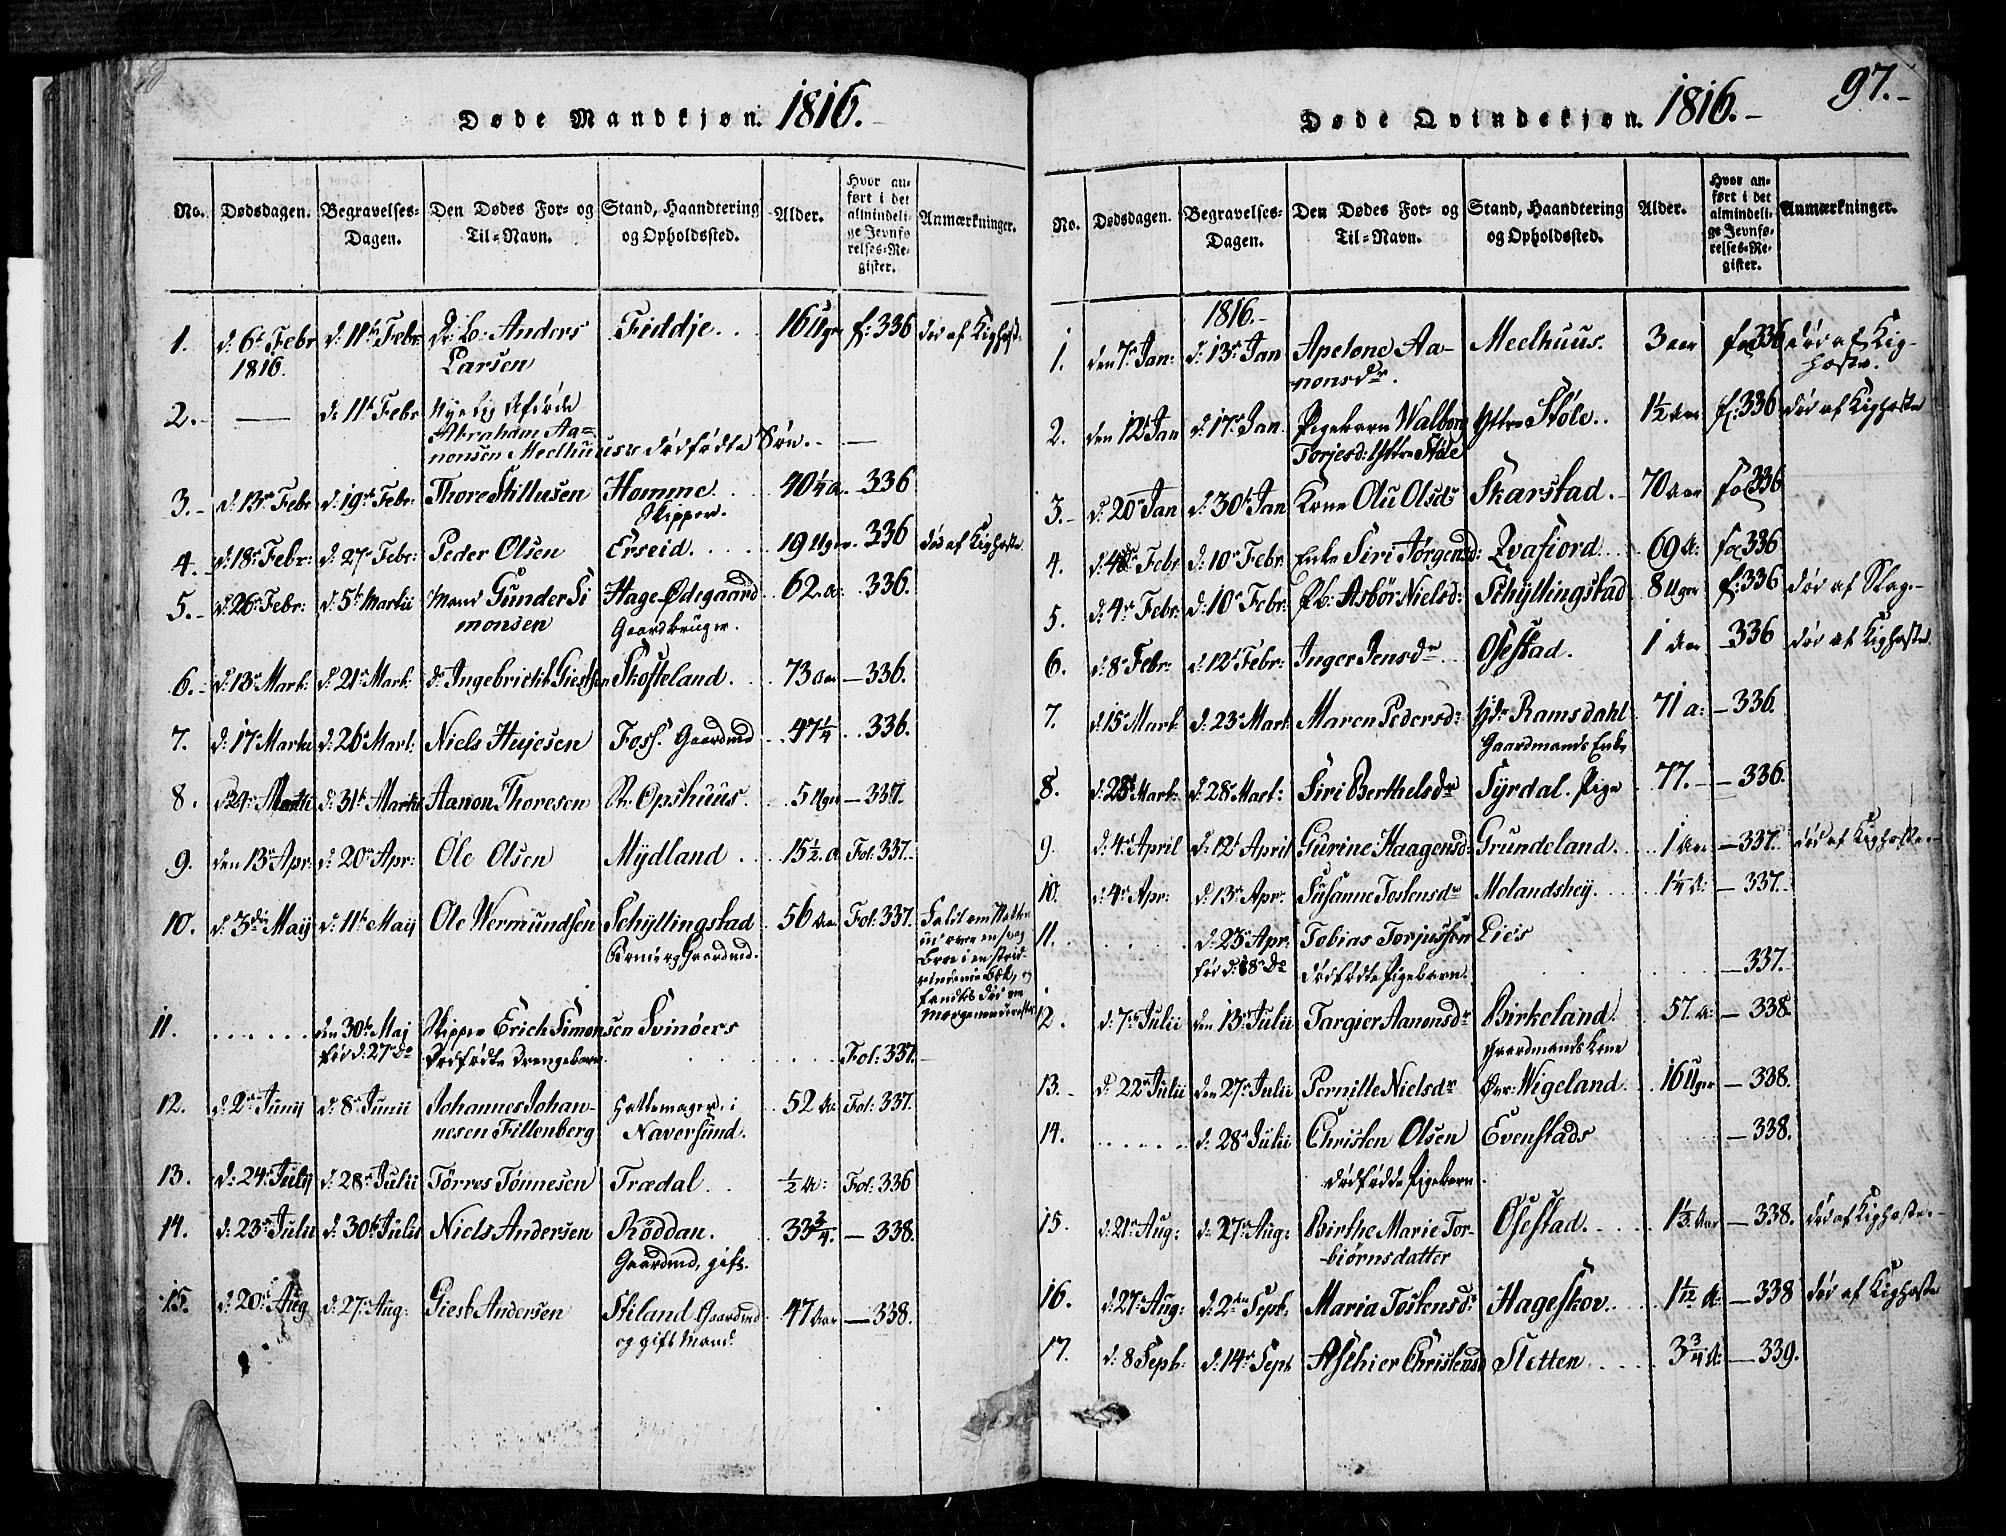 Døde Mandkjøn. 1816.
No. Dødsdagen. Begravelses-Dagen. Den Dødes For- og Til-Navn. Stand, Haandtering og Opholdssted. Alder. Hvor anført i det almindelige Jevnførelses-Register. Anmærkninger.
1. d: 6te Febr 1816. d: 11te Febr Dr: b: Anders Larsen Fiddje. 16 Uger f: 336 død af Kighoste
2. — d: 11te Febr
Abraham Aanonsen Meelhuus's dødfødte Søn. —
3. d: 13de Febr d: 19de Febr: Thore Stillusen Homme. Skipper. 40 1/4 a. 336
4. d: 18de Febr: d: 27de Febr: Peder Olsen Erseid. 19 Uger 336 død af Kighoste
5. d: 26de Febr: d: 5te Martii Mand Gunder Simonsen Hage Ødegaard Gaardbruger. 62 a: 336.
6. d: 13de Mart: d: 21de Mart: do Ingebricht Skofteland. 73 Aar — 336.
7. d: 17de Martii d: 26de Mart: Niels Hujesen Foss. Gaardmd 47 1/4 336.
8. d: 24de Martii d: 31te Martii Aanon Thoresen N: Opshuus. 5 Uger — 337.
9. den 13de Apr: d: 20de Apr: Ole Olsen Mydland. 15 1/2 a Fol: 337.
10. d: 3die Maij d: 11te Maij Ole Wermundsen Schyllingstad Gaardmd. 56 Aar Fol: 337.
11. den 30te Maj fød d: 27de do Skipper Erich Simonsen Svinøers Dødfødte Drengebarn. Fol: 337.
12. d: 2den Junij d: 8de Junii Johannes Johannesen Fillenberg Hattemager i Naversund. 52 Aar Fol: 337.
13. d: 24de Julij d: 28de Julii Tørres Tønnesen Trædal. 1/2 A: Fol: 336
14. d: 23de Julii d: 30te Julii Niels Andersen Røddan. Gaardmd, gift. 33 3/4. — 338.
15. d: 20de Aug d: 27de Aug: Giest Andersen Stiland Gaardmd og gift Mand. 47 Aar — 338.
97.
Døde Qvindekjøn. 1816.
No. Dødsdagen. Begravelses-Dagen. Den Dødes For- og Til-Navn. Stand, Haandtering og Opholdssted. Alder. Hvor anført i det almindelige Jevnførelses-Register. Anmærkninger.
1816.
1. den 7de Jan: d: 13de Jan Apelone Aanonsdr. Meelhuus. 3 aar fol 336 død af Kighoste.
2. den 12te Jan d: 17de Jan. Pigebarn Walborg Torjesd: Yttre Støle Yttre Støle. 1 1/2 Aar f: 336 død af Kighoste
3. d: 20de Jan d: 30te Jan Kone Olu Olsdr Skarstad. 70 Aar fol 336
4. d: 4de Febr d: 10de Febr: Enke Siri Jørgensd: Qvafiord. 69 A: fol 336
5. d: 4de Febr: d: 10de Febr: Pb: Asbør Nielsd: Schyllingstad 8 Uger f: 336 død af Slag.
6. d: 8de Febr: d: 12te Febr: Inger Jensdr Osestad. 1 Aar 336 død af Kighoste
7. d: 15de Mart d: 23de Mart Maren Pedersd: Ydr Ramsdahl Gaardmands Enke 71 a: — 336.
8. d: 23de Mart: d: 28de Mart: Siri Berthelsdr Syrdal. Pige 77. — 336.
9. d: 4de April d: 12te April Gurine Haagensd: Grundeland. 1 Aar — 337. død af Kighoste
10. d: 4de Apr: d: 13de Apr: Susanne Tostensdr Molandshey. 1 1/4 A: — 337.
11. d: 23de Apr: fød d: 18de do Tobias Torjussen Lie's dødfødte Pigebarn. — 337.
12. d: 7de Julii den 13de Julii Targier Aanonsdr Birkeland. Gaardmands Kone 57 A: — 338
13. d: 22de Julii den 27de Julii Pernille Nielsdr Øvr: Wigeland. 16 Uger — 338.
14. d: 28de Julii Christen Olsen Evenstads dødfødde Pigebarn. — 338.
15. d: 21de Aug: d: 27de Aug: Birthe Marie Torbiørnsdatter Osestad. 1 1/3 Aar — 338. død af Kighoste
16. d: 27de Aug: d: 2den Sept: Maria Tostensdr Hageskov. 1 1/12 A: — 338 død af Kighoste
17. d: 8 Sept: d: 14de Sept Aschier Christensd Sletten 3 3/4 A: — 339.